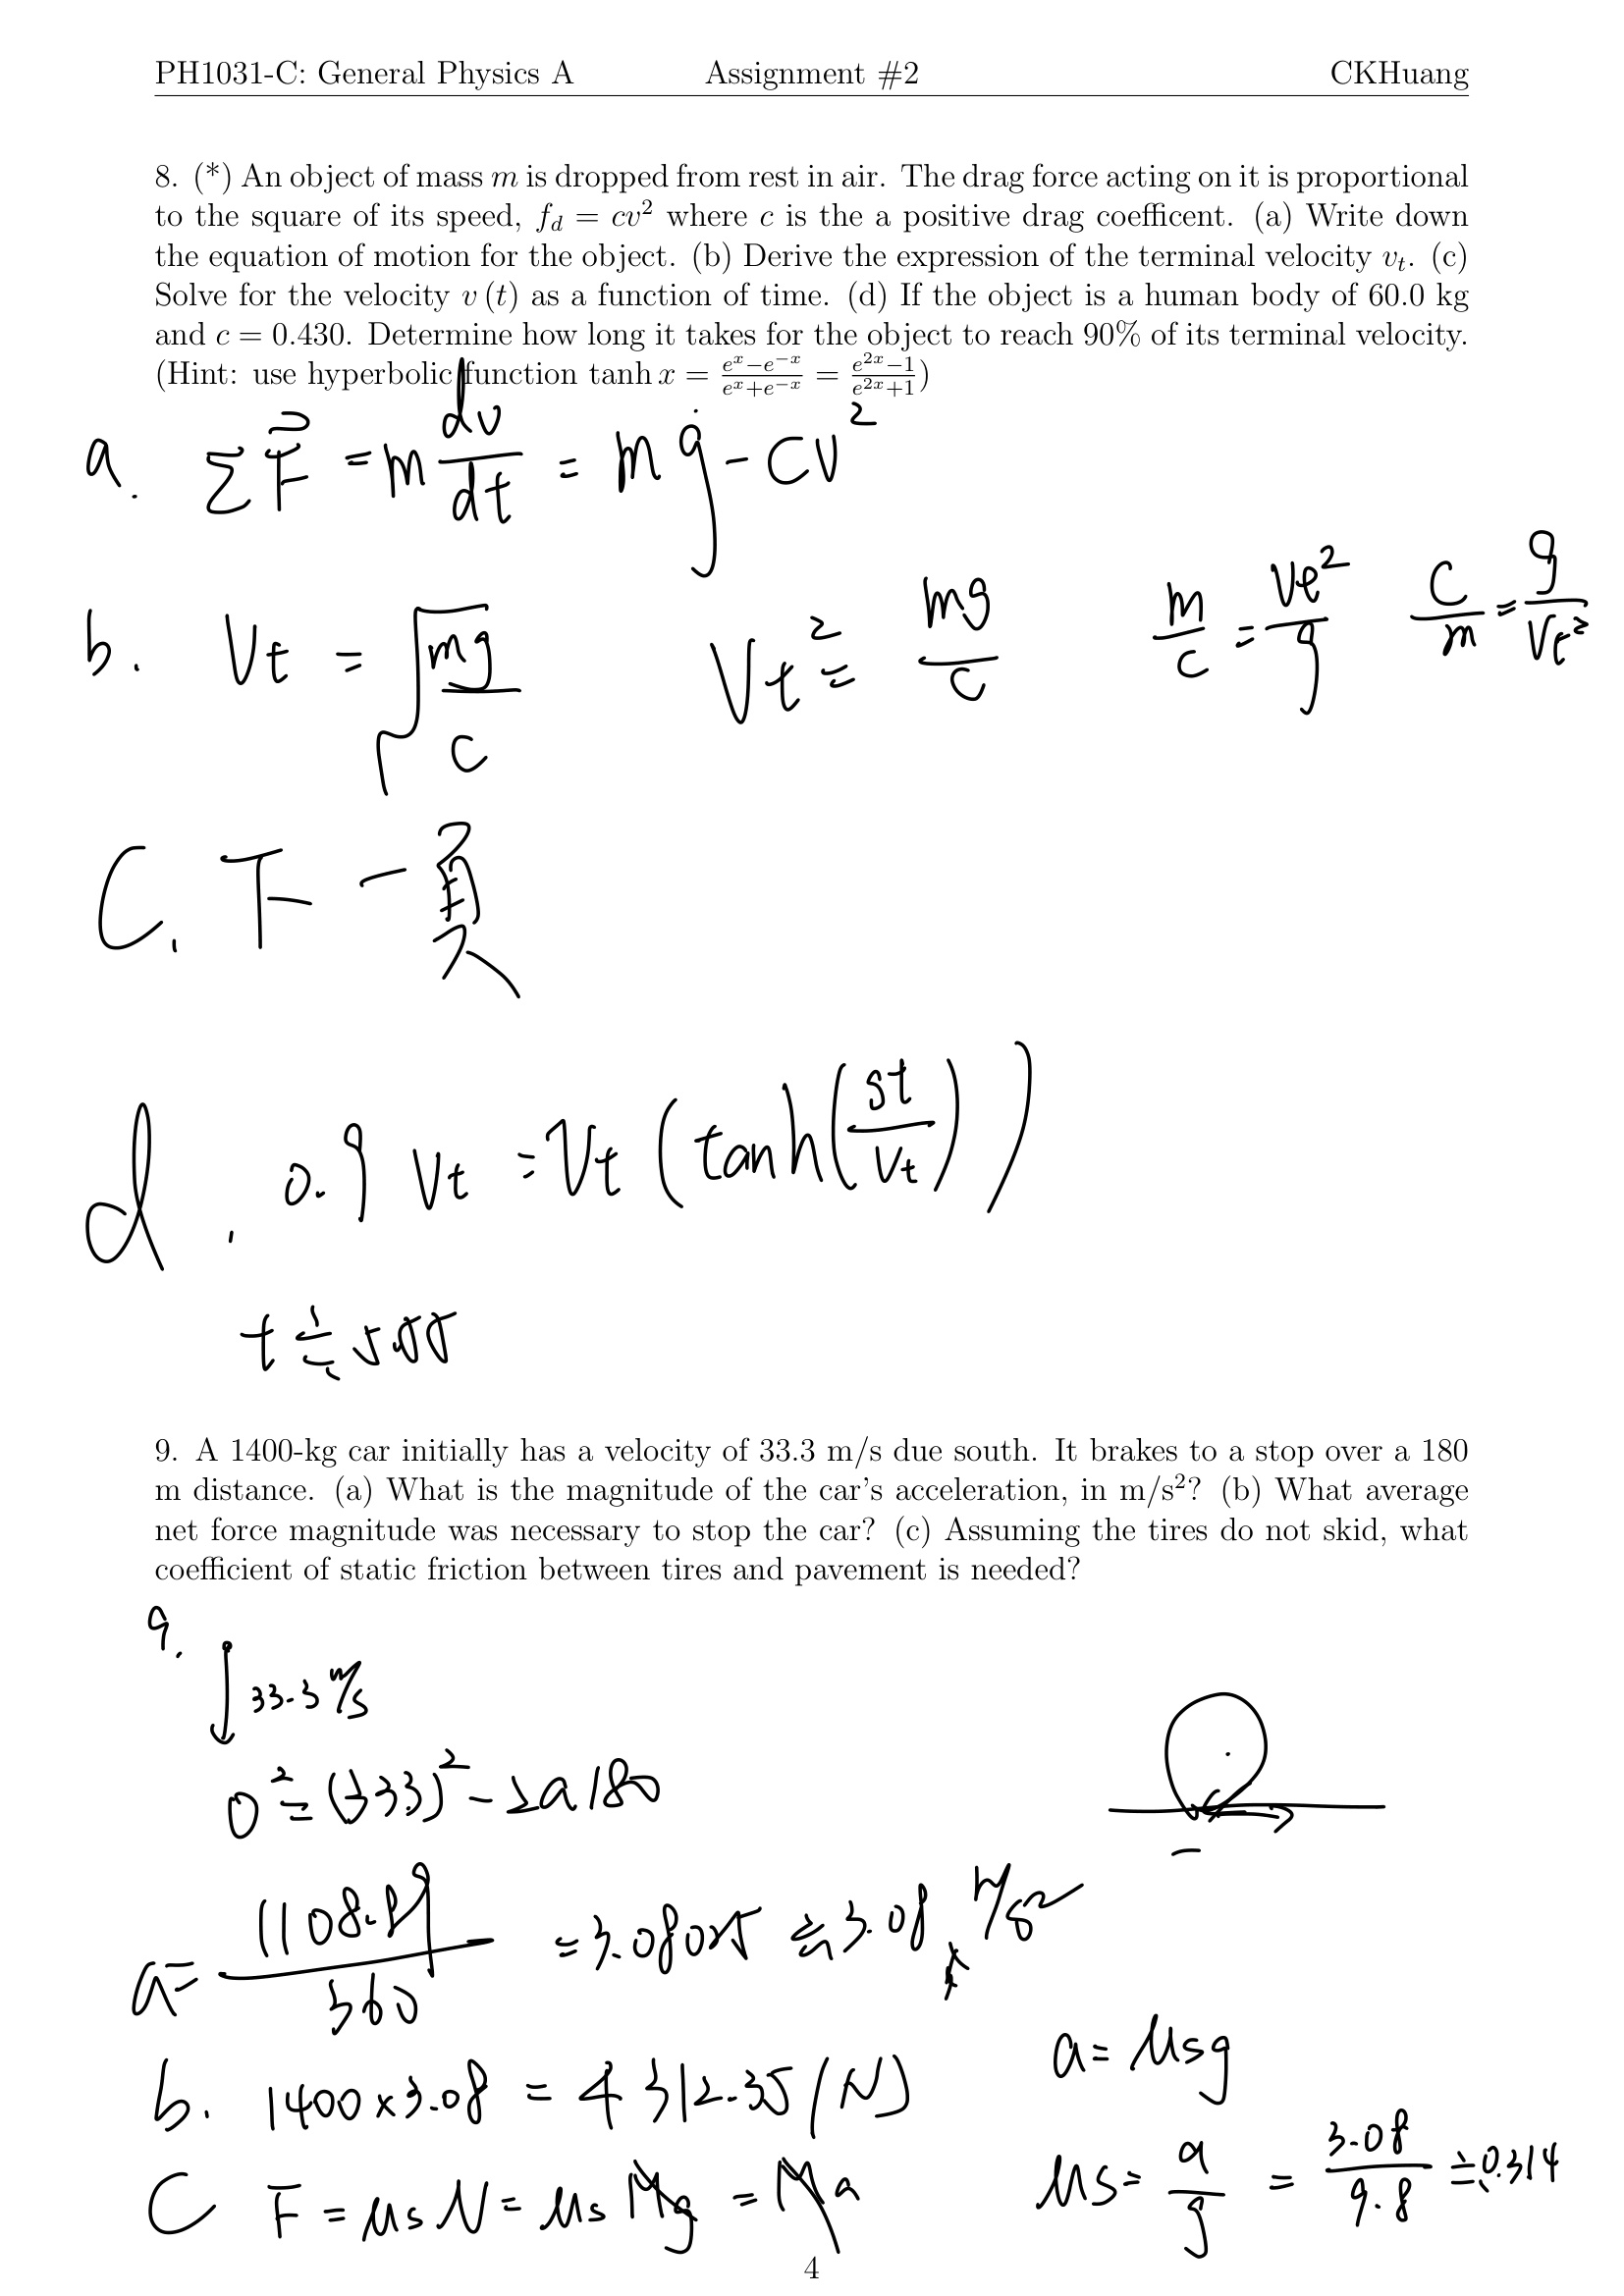 PH1031-C: General Physics A Assignment #2 CKHuang
8. (*) An object of mass m is dropped from rest in air. The drag force acting on it is proportional
to the square of its speed, f_d = cv² where c is the a positive drag coefficent. (a) Write down
the equation of motion for the object. (b) Derive the expression of the terminal velocity v_t. (c)
Solve for the velocity v (t) as a function of time. (d) If the object is a human body of 60.0 kg
and c = 0.430. Determine how long it takes for the object to reach 90% of its terminal velocity.
(Hint: use hyperbolic function tanh x = (e^x − e^−x)/(e^x + e^−x) = (e^2x − 1)/(e^2x + 1))
a. ΣF⃗ = m dv/dt = mg − cv²
b. Vt = √(mg/c) Vt² = mg/c m/c = Vt²/g c/m = g/Vt²
C. 下一頁
d. 0.9 Vt = Vt (tanh(gt/Vt))
t ≒ 5.55
9. A 1400-kg car initially has a velocity of 33.3 m/s due south. It brakes to a stop over a 180
m distance. (a) What is the magnitude of the car's acceleration, in m/s²? (b) What average
net force magnitude was necessary to stop the car? (c) Assuming the tires do not skid, what
coefficient of static friction between tires and pavement is needed?
9.
33.3 m/s
0² = (33.3)² − 2a180
a = 1108.89/360 = 3.08025 ≒ 3.08 m/s²
b. 1400 × 3.08 = 4312.35 (N)
a = μsg
C F = μsN = μsMg = Ma
μs = a/g = 3.08/9.8 ≒ 0.314
4